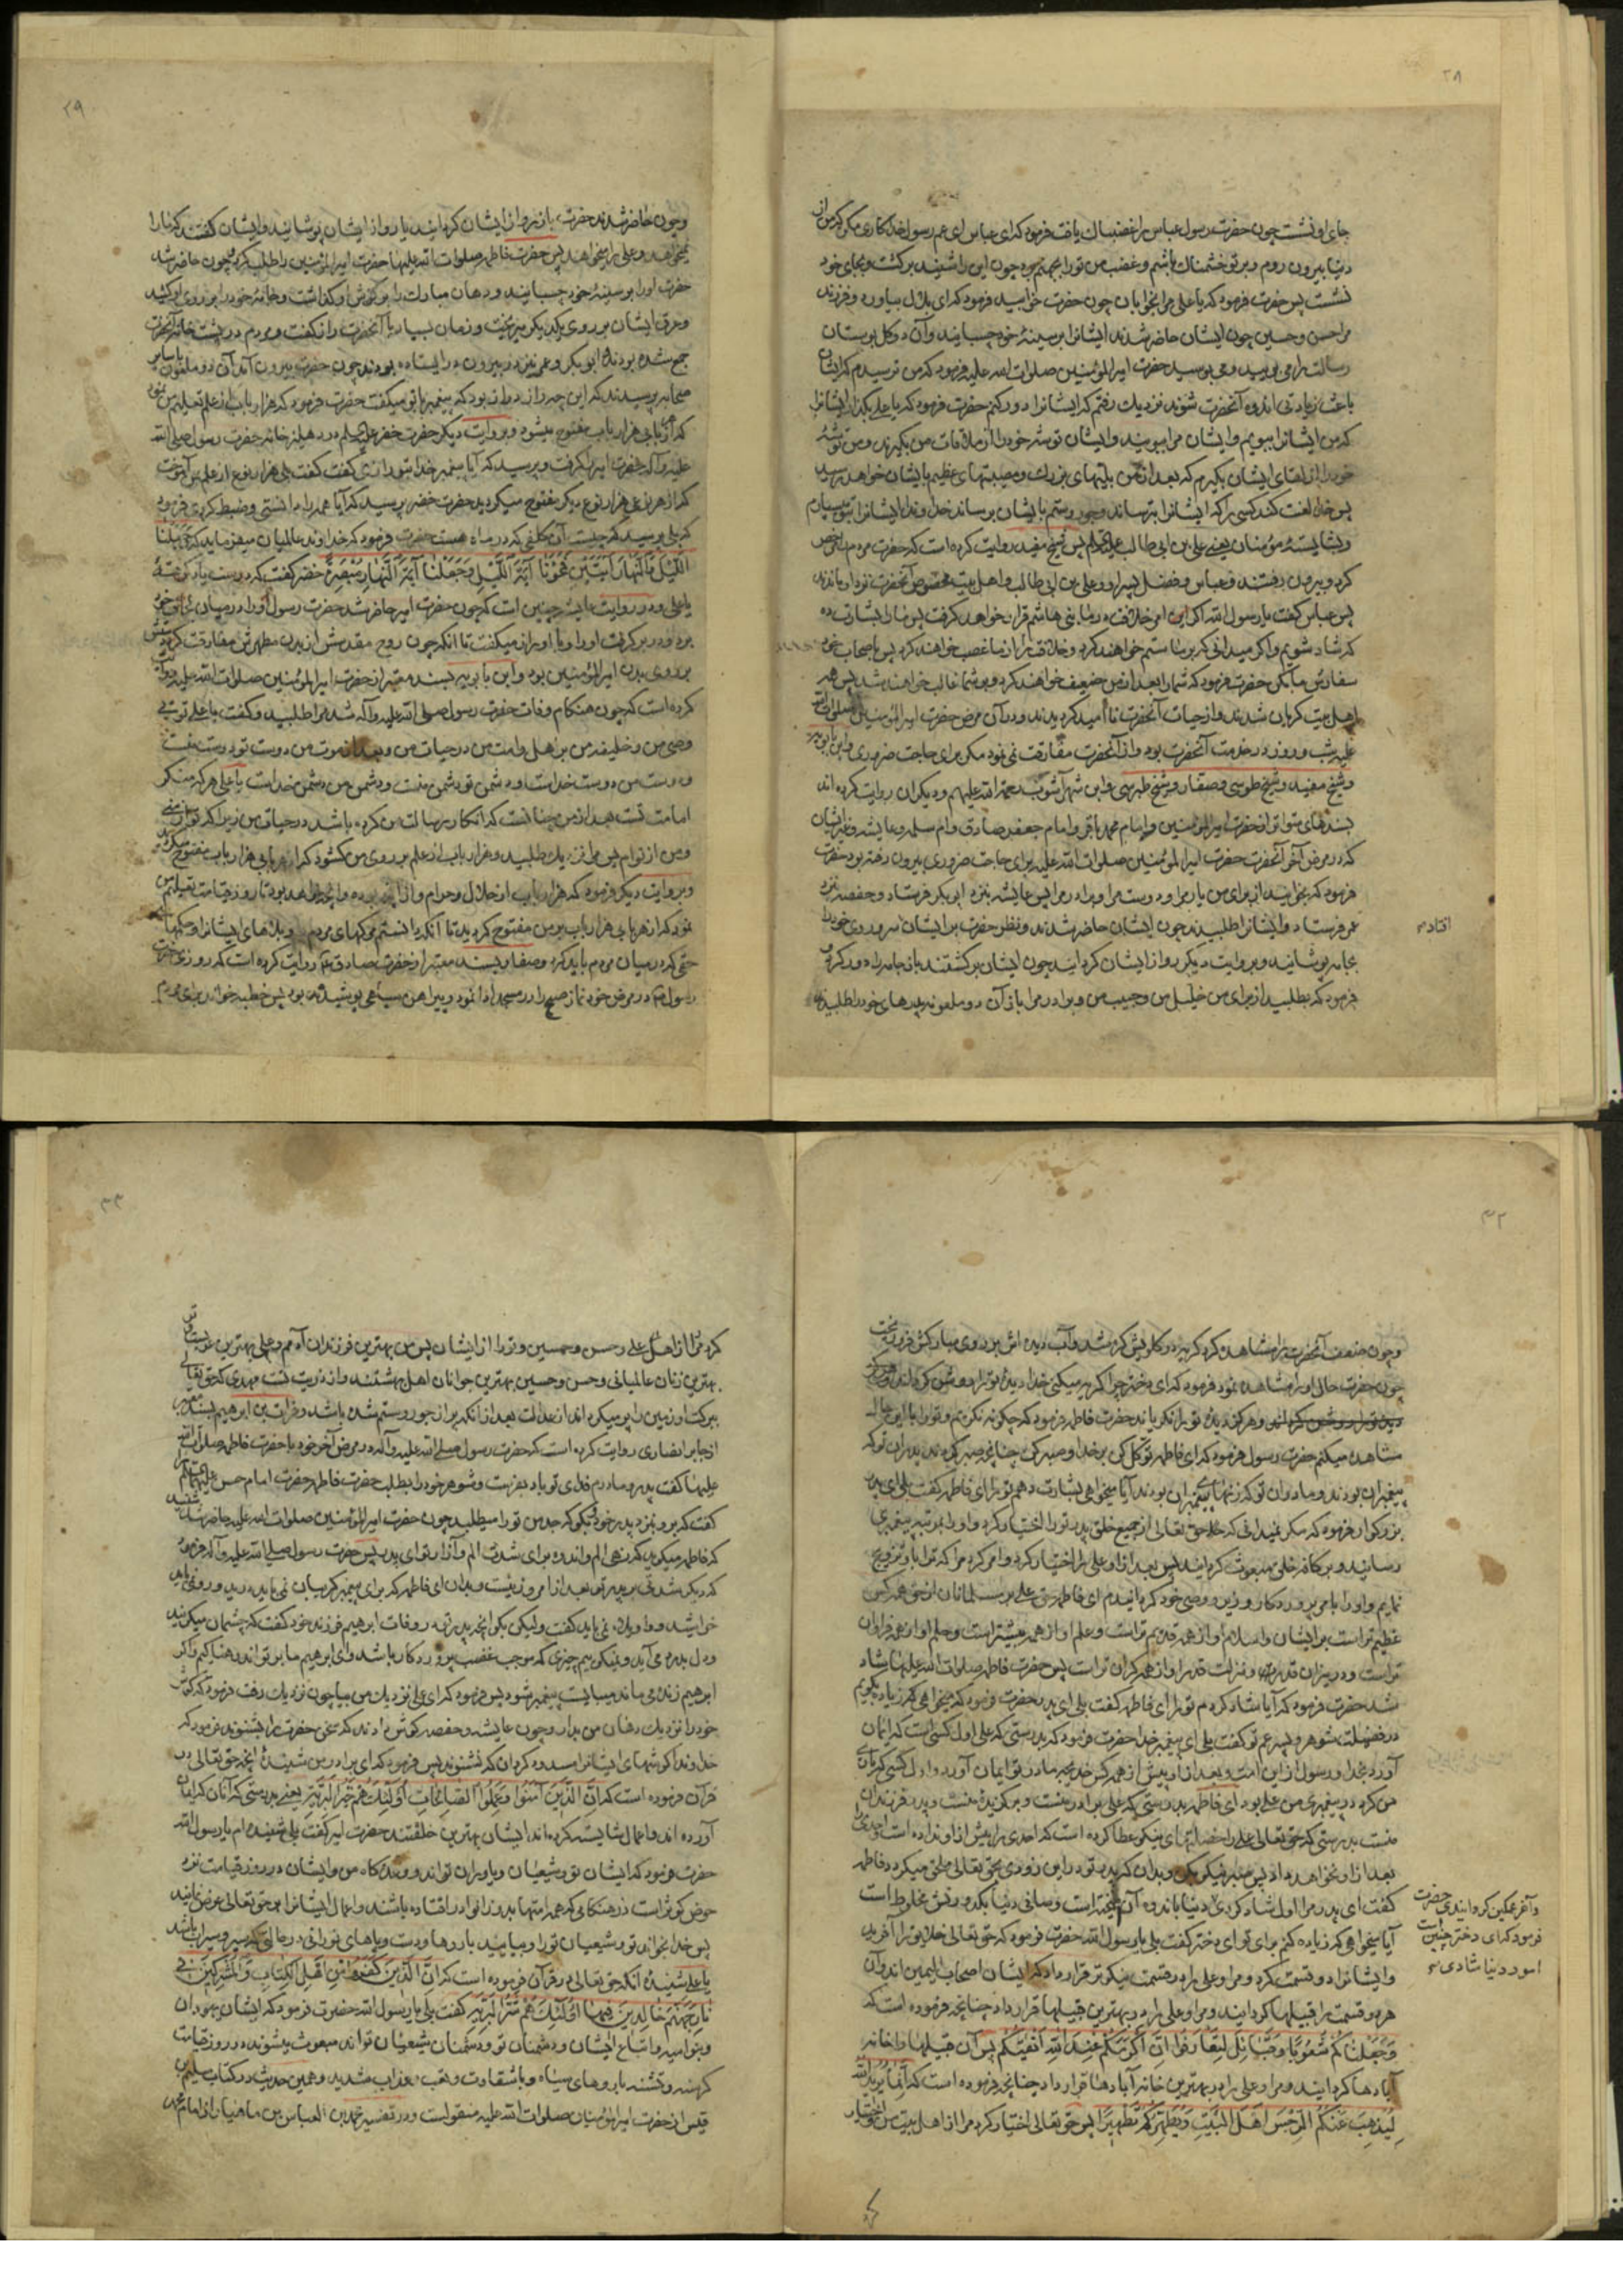 ۲۸
جای او نشست چون حضرت رسول عباس را غضبناک یافت فرمود که ای عباس ای عم رسول خدا کاری مکن که من از
دنیا بیرون روم و بر تو خشمناک باشم و غضب من تو را بجهنم برد چون این را شنید برگشت و بجای خود
نشست پس حضرت فرمود که یا علی مرا بخوابان چون حضرت خوابید فرمود که ای بلال بیاور دو فرزند
مرا حسن و حسین چون ایشان حاضر شدند ایشانرا بر سینهٔ خود چسبانید و آن دو گل بوستان
رسالت را می بویید و می بوسید حضرت امیرالمؤمنین صلوات الله علیه فرمود که من ترسیدم که ایشان
باعث زیادتی اندوه آنحضرت شوند نزدیک رفتم که ایشانرا دور کنم حضرت فرمود که یا علی بگذار ایشانرا
که من ایشانرا ببویم و ایشان مرا ببویند و ایشان توشه خود را از ملاقات من بگیرند و من توشهٔ
خود را از لقای ایشان بگیرم که بعد از من بلیتهای بزرک و مصیبتهای عظیم بایشان خواهد رسید
پس خدا لعنت کند کسی را که ایشانرا بترساند و جور و ستم بایشان برساند خداوندا ایشانرا بتو میسپارم
و بشایستهٔ مؤمنان یعنی علی بن ابی طالب علیه السلام پس شیخ مفید روایت کرده است که حضرت مردم را مرخص
کرد و بیرون رفتند و عباس و فضل پسر او و علی بن ابی طالب و اهل بیت مخصوص آنحضرت نزد او ماندند
پس عباس گفت یا رسول الله اگر این امر خلافت در ما بنی هاشم قرار خواهد گرفت پس ما را بشارت ده
که شاد شویم و اگر میدانی که بر ما ستم خواهند کرد و خلافت را از ما غصب خواهند کرد پس باصحاب خود
سفارش ما بکن حضرت فرمود که شما را بعد از من ضعیف خواهند کرد و بر شما غالب خواهند شد پس همه
اهل بیت گریان شدند و از حیات آنحضرت ناامید گردیدند و در آن مرض حضرت امیر المؤمنین صلوات الله
علیه شب و روز در خدمت آنحضرت بود و از آنحضرت مفارقت نمی نمود مگر برای حاجت ضروری و ابن بابویه
و شیخ مفید و شیخ طوسی و صفار و شیخ طبرسی و ابن شهرآشوب رحمة الله علیهم و دیگران روایت کرده اند
بسندهای متواتر از حضرت امیرالمؤمنین و امام محمد باقر و امام جعفر صادق و ام سلمه و عایشه و غیر ایشان
که در مرض آخر آنحضرت حضرت امیرالمؤمنین صلوات الله علیه برای حاجت ضروری بیرون رفته بود حضرت
فرمود که بخوانید از برای من یار مرا و دوست مرا و برادر مرا پس عایشه بنزد ابی بکر فرستاد و حفصه بنزد
عمر فرستاد و ایشانرا طلبیدند چون ایشان حاضر شدند و نظر حضرت بر ایشان سر و روی خود را
افتاد
بجامه پوشانید و بروایت دیگر رو از ایشان گردانید چون ایشان برگشتند باز جامه را دور کرد و
فرمود که بطلبید از برای من خلیل من و حبیب من و برادر مرا باز آن دو ملعونه پدرهای خود را طلبیدند
۲۹
و چون حاضر شدند حضرت باز رو از ایشان گردانید یا رو از ایشان پوشانید و ایشان گفتند که ما را
نمیخواهد و علی را میخواهد پس حضرت فاطمه صلوات الله علیها حضرت امیرالمؤمنین را طلب کرد چون حاضر شد
حضرت او را بر سینهٔ خود چسبانید و دهان مبارک را بر گوش او گذاشت و جامهٔ خود را بر روی او کشید
و عرق ایشان بر روی یکدیگر میریخت و زمان بسیار با آنحضرت راز گفت و مردم در پشت خانه آنحضرت
جمع شده بودند و ابو بکر و عمر نیز در بیرون در ایستاده بودند چون حضرت بیرون آمد آن دو ملعون با سایر
صحابه پرسیدند که این چه راز دراز بود که پیغمبر با تو میگفت حضرت فرمود که هزار باب از علم تعلیم من نمود
که از هر بابی هزار باب مفتوح میشود و بروایت دیگر حضرت خضر علیه السلم در دهلیز خانه حضرت رسول صلی الله
علیه و آله حضرت امیر را گرفت و پرسید که آیا پیغمبر خدا بتو رازی گفت گفت بلی هزار نوع از علم بمن آموخت
که از هر نوعی هزار نوع دیگر مفتوح میگردید حضرت خضر پرسید که آیا همه را دانستی و ضبط کردی فرمود
که بلی پرسید که چیست آن کلفی که در ماه هست حضرت فرمود که خداوند عالمیان میفرماید که وَ جَعَلْنَا
اللَّیْلَ وَالنَّهَارَ آیَتَیْنِ فَمَحَوْنَا آیَةَ اللَّیْلِ وَجَعَلْنَا آیَةَ النَّهَارِ مُبْصِرَةً خضر گفت که درست یاد گرفتهٔ
یا علی و در روایت عایشه چنین است که چون حضرت امیر حاضر شد حضرت رسول او را در میان جامه خود
برد و در بر گرفت او را و با او راز میگفت تا آنکه چون روح مقدسش از بدن مطهرش مفارقت کرد
بر روی بدن امیرالمؤمنین بود و ابن بابویه بسند معتبر از حضرت امیرالمؤمنین صلوات الله علیه روایت
کرده است که چون هنکام وفات حضرت رسول صلی الله علیه و آله شد مرا طلبید و گفت یا علی توئی
وصی من و خلیفه من بر اهل و امت من در حیات من و بعد از موت من دوست تو دوست منست
و دوست من دوست خداست و دشمن تو دشمن منست و دشمن من دشمن خداست یا علی هر که منکر
امامت تست بعد از من چنانست که انکار رسالت من کرده باشد در حیات من زیرا که تو از منی
و من از توام پس مرا نزدیک طلبید و هزار باب از علم بر روی من گشود که از هر بابی هزار باب مفتوح میگردد
و بروایت دیگر فرمود که هزار باب از حلال و حرام و از آنچه بوده و آنچه خواهد بود تا روز قیامت تعلیم من
نمود که از هر بابی هزار باب بر من مفتوح گردید تا آنکه دانستم مرگهای مردم و بلاهای ایشانرا و حکمها
حق که در میان مردم باید کرد و صفار بسند معتبر از حضرت صادق ع روایت کرده است که روزی حضرت
رسول ص در مرض خود نماز صبح را در مسجد ادا نمود و پیراهن سیاهی پوشیده بود پس خطبه خواند برای مردم
۳۲
و چون ضعف آنحضرت را مشاهده کرد گریه در گلویش گره شد و آب دیده اش بر روی مبارکش فرو ریخت
چون حضرت حال او را مشاهده نمود فرمود که ای دختر چرا گریه میکنی خدا دیدهٔ تو را روشن گرداند و هرگز
دیده تو را و هرگز دیدهٔ تو را نگریاند حضرت فاطمه فرمود که چگونه نگریم و تو را با این حال
مشاهده میکنم حضرت رسول فرمود که ای فاطمه توکل کن بر خدا و صبر کن چنانچه صبر کردند پدران تو که
پیغمبران بودند و مادران تو که زنهای پیغمبران بودند آیا میخواهی بشارت دهم تو را ای فاطمه گفت بلی ای پدر
بزرگوار فرمود که مگر نمیدانی که حق تعالی از جمیع خلق پدر تو را اختیار کرد و او را بمرتبه پیغمبری
رسانید و بر کافه خلق مبعوث گردانید پس بعد از او علی را اختیار کرد و امر کرد مرا که ترا با او تزویج
نمایم و او را بامر پروردگار وزیر و وصی خود گردانیدم ای فاطمه حق علی بر مسلمانان از حق همه کس
عظیم تر است بر ایشان و اسلام او از همه قدیم تر است و علم او از همه بیشتر است و حلم او از همه فراوان
تر است و در میزان قدر و منزلت قدر او از همه گران تر است پس حضرت فاطمه صلوات الله علیها شاد
شد حضرت فرمود که آیا شاد کردم تو را ای فاطمه گفت بلی ای پدر حضرت فرمود که میخواهی که زیاده بگویم
در فضیلت شوهر و پسر عم تو گفت بلی ای پیغمبر خدا حضرت فرمود که بدرستی که علی اول کسی است که ایمان
آورد بخدا و رسول از این امت و بعد از او پیش از همه کس خدیجه مادر تو ایمان آورد و اول کسی که یاری
من کرد در پیغمبری من علی بود ای فاطمه بدرستی که علی برادر منست و برگزیدهٔ منست و پدر فرزندان
منست بدرستی که حق تعالی علی را خصلتهای نیکو عطا کرده است که احدی را پیش از او نداده است و احدی را
بعد از او نخواهد داد پس صبر نیکو بکن و بدان که پدر تو در این زودی بحق تعالی ملحق میگردد فاطمه
گفت ای پدر مرا اول شاد کردی حضرت
و آخر غمگین گردانیدی
فرمود که ای دختر چنین است
امور دنیا شادی
دنیا باندوه آن آمیخته است و صافی دنیا بکدورتش مخلوط است
آیا میخواهی که زیاده کنم برای تو ای دختر گفت بلی یا رسول الله حضرت فرمود که حق تعالی خلایق را آفرید
و ایشانرا دو قسمت کرد و مرا و علی را در قسمت نیکوتر قرار داد که ایشان اصحاب الیمین اند و آن
هر دو قسمت را قبیلها گردانید و مرا و علی را در بهترین قبیلها قرار داد چنانچه فرموده است که
وَجَعَلْنَاکُمْ شُعُوبًا وَقَبَائِلَ لِتَعَارَفُوا إِنَّ أَکْرَمَکُمْ عِنْدَ اللَّهِ أَتْقَیکُمْ پس آن قبیلها را خانه
آبادها گردانید و مرا و علی را در بهترین خانه آبادها قرار داد چنانچه فرموده است که إِنَّمَا یُرِیدُ اللَّهُ
لِیُذْهِبَ عَنْکُمُ الرِّجْسَ أَهْلَ الْبَیْتِ وَیُطَهِّرَکُمْ تَطْهِیرًا پس حق تعالی اختیار کرد مرا از اهل بیت من و اختیار
۳۳
کرد علی و حسن و حسین و تو را از ایشان پس من بهترین فرزندان آدمم و علی بهترین عربست و تو
بهترین زنان عالمیانی و حسن و حسین بهترین جوانان اهل بهشتند و از ذریت تست مهدی که حق تعالی
ببرکت او زمین را پر میکرداند از عدالت بعد از آنکه پر از جور و ستم شده باشد و فرات بن ابرهیم بسند معتبر
از جابر انصاری روایت کرده است که حضرت رسول صلی الله علیه و آله در مرض آخر خود با حضرت فاطمه صلوات الله
علیها گفت پدر و مادرم فدای تو باد بفرست و شوهر خود را بطلب حضرت فاطمه حضرت امام حسن علیه السلام را
گفت که برو بنزد پدر خود و بگو که جد من تو را میطلبد چون حضرت امیرالمؤمنین صلوات الله علیه حاضر شد شنید
که فاطمه میگوید که زهی الم و اندوه برای شدت الم و آزار تو ای پدر پس حضرت رسول صلی الله علیه و آله فرمود
که دیگر شدتی بر پدر تو بعد از امروز نیست و بدان ای فاطمه که برای پیغمبر گریبان نمی باید درید و رو نمی باید
خراشید و واویلاه نمی باید گفت و لیکن بگو آنچه پدر تو در وفات ابرهیم فرزند خود گفت که چشمان میگریند
و دل بدرد می آید و نمیگوییم چیزی که موجب غضب پروردگار باشد و ای ابرهیم ما بر تو اندوهناکیم و اگر
ابرهیم زنده می ماند میبایست پیغمبر شود پس فرمود که ای علی نزدیک من بیا چون نزدیک رفت فرمود که گوش
خود را نزدیک دهان من بدار و چون عایشه و حفصه گوش دادند که سخن حضرت را بشنوند فرمود که
خداوندا گوشهای ایشانرا مسدود گردان که نشنوند پس فرمود که ای برادر من شنیدهٔ آنچه حق تعالی در
قرآن فرموده است که إِنَّ الَّذِینَ آمَنُوا وَعَمِلُوا الصَّالِحَاتِ أُولَئِکَ هُمْ خَیْرُ الْبَرِیَّةِ یعنی بدرستی که آنان که ایمان
آورده اند و اعمال شایسته کرده اند ایشان بهترین خلقند حضرت امیر گفت بلی شنیده ام یا رسول الله
حضرت فرمود که ایشان تو و شیعیان و یاوران تواند و وعده گاه من و ایشان در روز قیامت نزد
حوض کوثر است در هنگامی که همه امتها بدو زانو در افتاده باشند و اعمال ایشانرا بر حق تعالی عرض نمایند
پس خدا بخواند تو و شیعیان تو را و بیایید با روها و دست و پاهای نورانی در حالی که سیر و سیراب باشید
یا علی شنیدهٔ آنکه حق تعالی در قرآن فرموده است که إِنَّ الَّذِینَ کَفَرُوا مِنْ أَهْلِ الْکِتَابِ وَالْمُشْرِکِینَ فِی
نَارِ جَهَنَّمَ خَالِدِینَ فِیهَا أُولَئِکَ هُمْ شَرُّ الْبَرِیَّةِ گفت بلی یا رسول الله حضرت فرمود که ایشان یهودان
و بنو امیه و اتباع ایشان و دشمنان تو و دشمنان شیعیان تواند مبعوث میشوند در روز قیامت
گرسنه و تشنه با روهای سیاه و با شقاوت و تعب و عذاب شدید و همین حدیث در کتاب سلیم بن
قیس از حضرت امیرالمؤمنین صلوات الله علیه منقولست و در تفسیر محمد بن العباس بن ماهیار از امام محمد